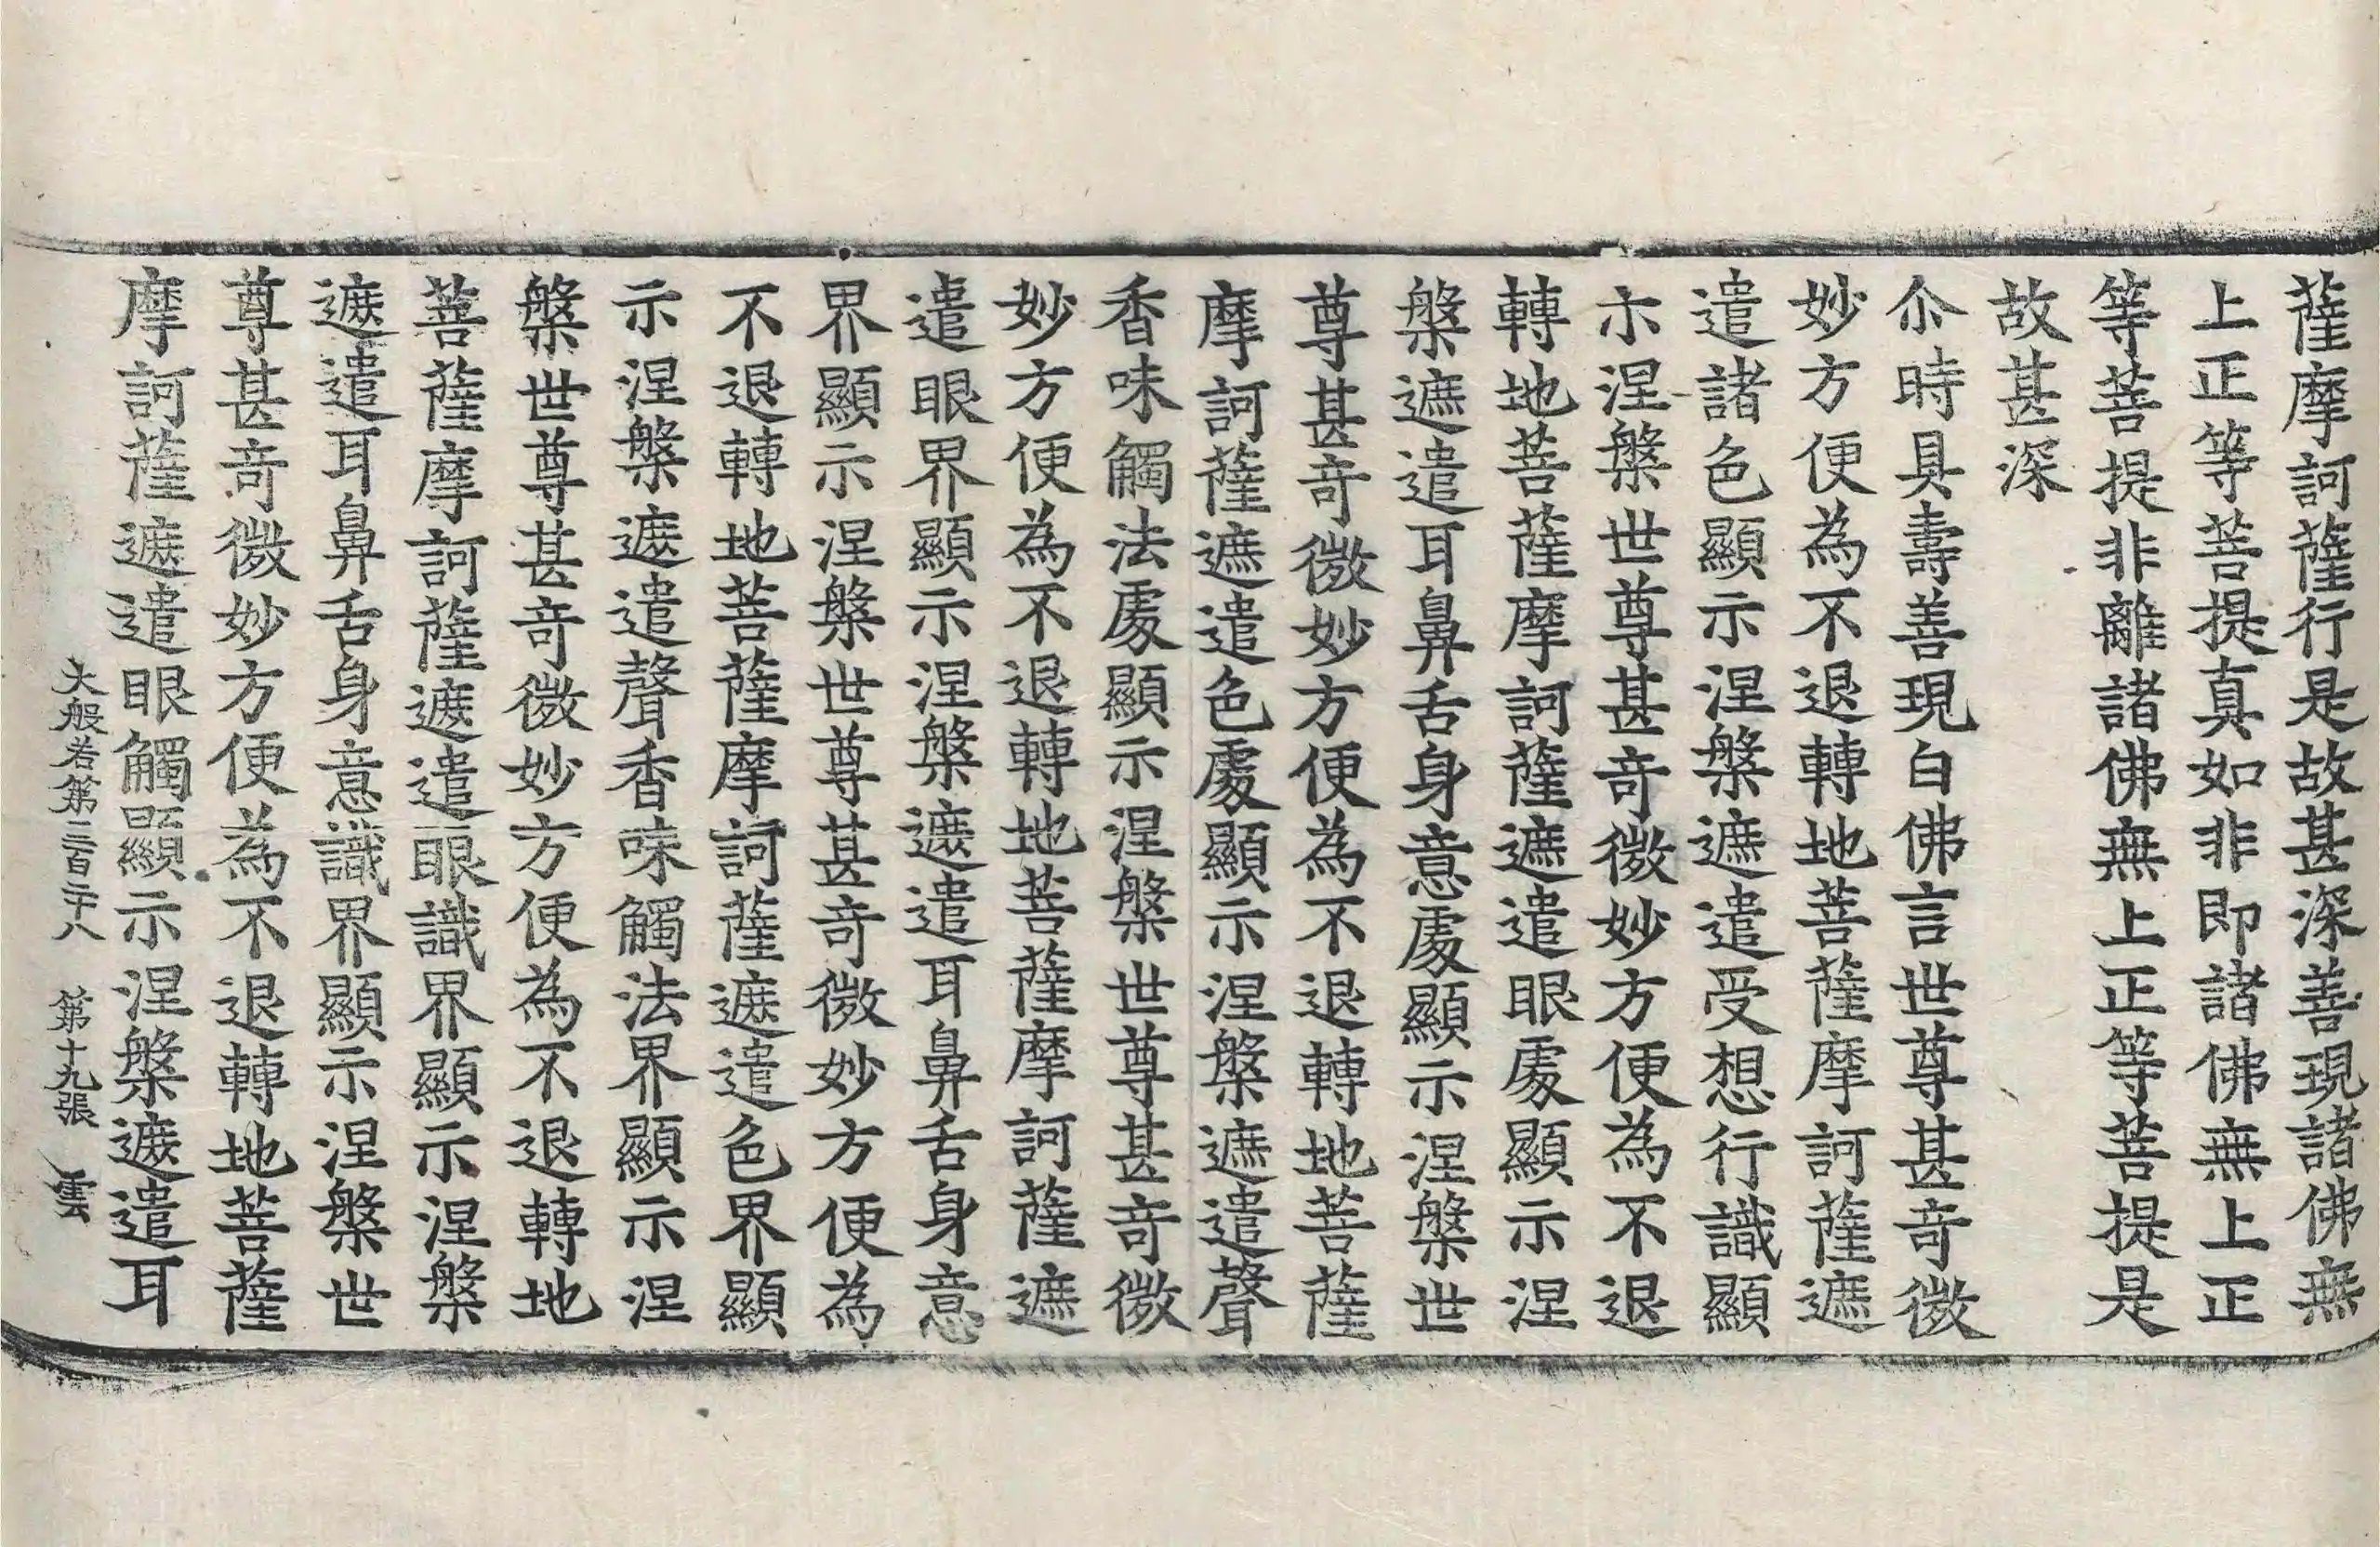 薩摩訶薩行是故甚深善現諸佛無
上正等菩提真如非即諸佛無上正
等菩提非離諸佛無上正等菩提是
故甚深
尒時具壽善現白佛言世尊甚奇微
妙方便為不退轉地菩薩摩訶薩遮
遣諸色顯示涅槃遮遣受想行識顯
示涅槃世尊甚奇微妙方便為不退
轉地菩薩摩訶薩遮遣眼處顯示涅
槃遮遣耳鼻舌身意處顯示涅槃世
尊甚奇微妙方便為不退轉地菩薩
摩訶薩遮遣色處顯示涅槃遮遣聲
香味觸法處顯示涅槃世尊甚奇微
妙方便為不退轉地菩薩摩訶薩遮
遣眼界顯示涅槃遮遣耳鼻舌身意
界顯示涅槃世尊甚奇微妙方便為
不退轉地菩薩摩訶薩遮遣色界顯
示涅槃遮遣聲香味觸法界顯示涅
槃世尊甚奇微妙方便為不退轉地
菩薩摩訶薩遮遣眼識界顯示涅槃
遮遣耳鼻舌身意識界顯示涅槃世
尊甚奇微妙方便為不退轉地菩薩
摩訶薩遮遣眼觸顯示涅槃遮遣耳
大般若第三百二十八 第十九張 雲